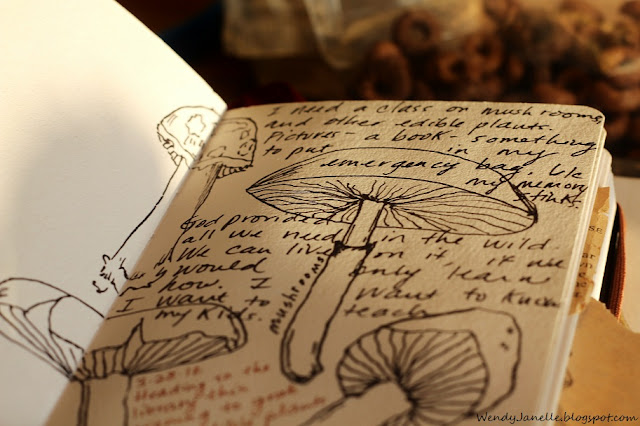 I need a class on mushrooms
and other edible plants.
Pictures - a book - something
to put in my
emergency bag, b/c
my memory
stinks.
God provided
all we need in the wild.
We can live on it, if we
would only learn
how. I want to know
I want to teach
my kids.
mushrooms
3-28-12
Heading to the
library this
to
WendyJanelle.blogspot.com